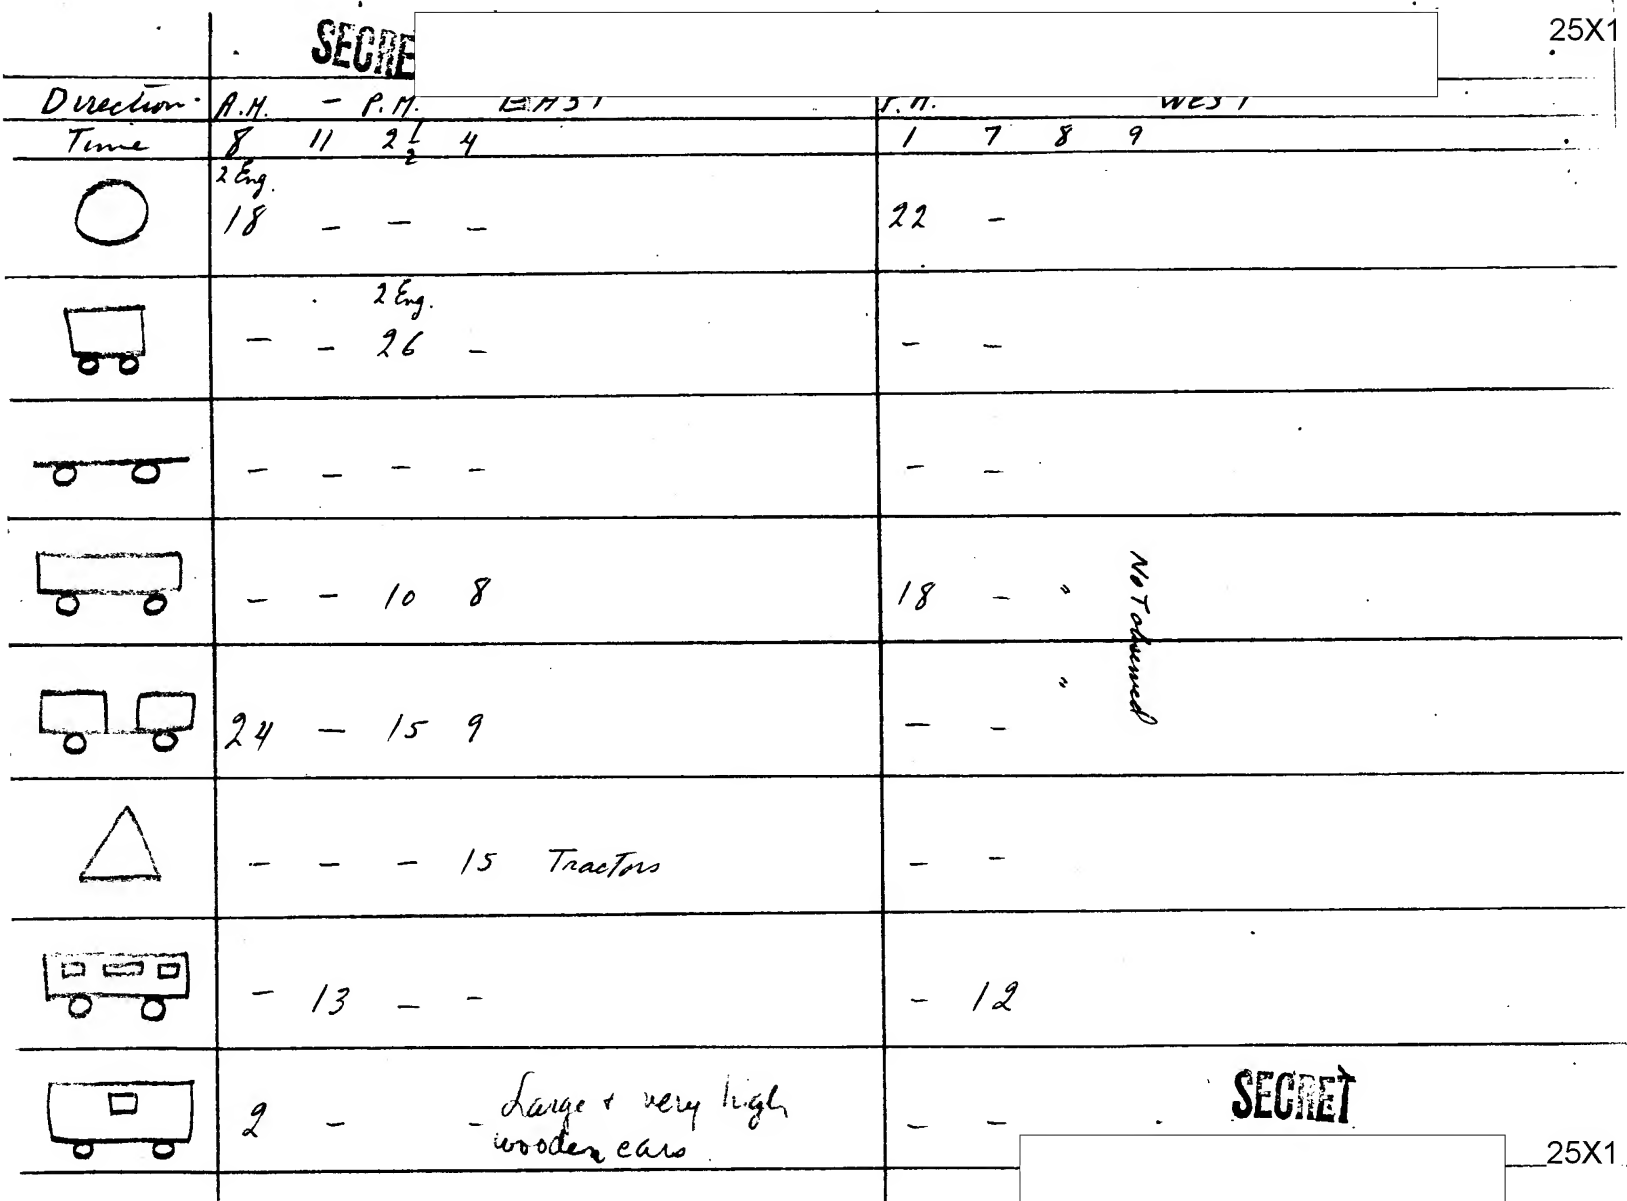 SECRE
25X1
Direction. A.M. - P.M. EAST P.M. WEST
Time 8 11 2 1/2 4 1 7 8 9
2 Eng.
18 - - - 22 -
2 Eng.
- - 26 - - -
- - - - - -
- - 10 8 18 - "
Not observed
24 - 15 9 - - "
- - - 15 Tractors - -
- 13 - - - 12
SECRET
2 - - Large + very high - -
wooden cars
25X1